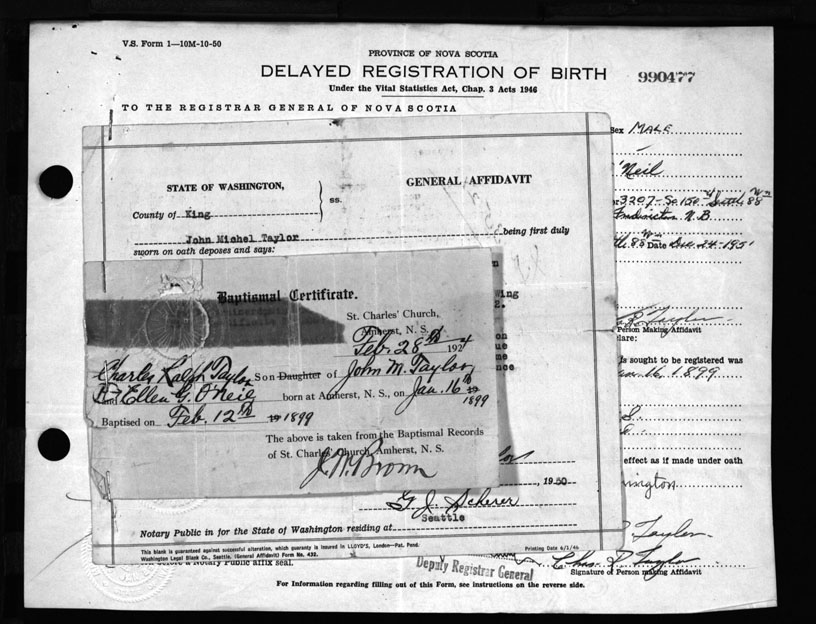 V.S. Form 1—10M-10-50
PROVINCE OF NOVA SCOTIA
DELAYED REGISTRATION OF BIRTH
990477
Under the Vital Statistics Act, Chap. 3 Acts 1946
TO THE REGISTRAR GENERAL OF NOVA SCOTIA
Sex MALE
'Neil
3207-So 150
Fredericton N.B.
Date Dec 24-1951
Person Making Affidavit
lare:
is sought to be registered was
16 1899
effect as if made under oath
ington
Taylor
Chas. R Taylor
Signature of Person making Affidavit
Deputy Registrar General
a Notary Public affix seal.
For Information regarding filling out of this Form, see instructions on the reverse side.
STATE OF WASHINGTON,
ss.
GENERAL AFFIDAVIT
County of King
John Michel Taylor
being first duly
sworn on oath deposes and says:
, 1950
G. J. Scherer
Notary Public in for the State of Washington residing at Seattle
This blank is guaranteed against successful alteration, which guaranty is insured in LLOYD'S, London—Pat. Pend.
Washington Legal Blank Co., Seattle. (General Affidavit) Form No. 432.
Printing Date 6/1/46
Baptismal Certificate.
St. Charles' Church,
Amherst, N. S.
Feb. 28th 1924
Charles Ralph Taylor Son Daughter of John M. Taylor
and Ellen G. O'Neil born at Amherst, N. S., on Jan. 16th 19 1899
Baptised on Feb. 12th 19 1899
The above is taken from the Baptismal Records
of St. Charles' Church, Amherst, N. S.
J. W. Brown